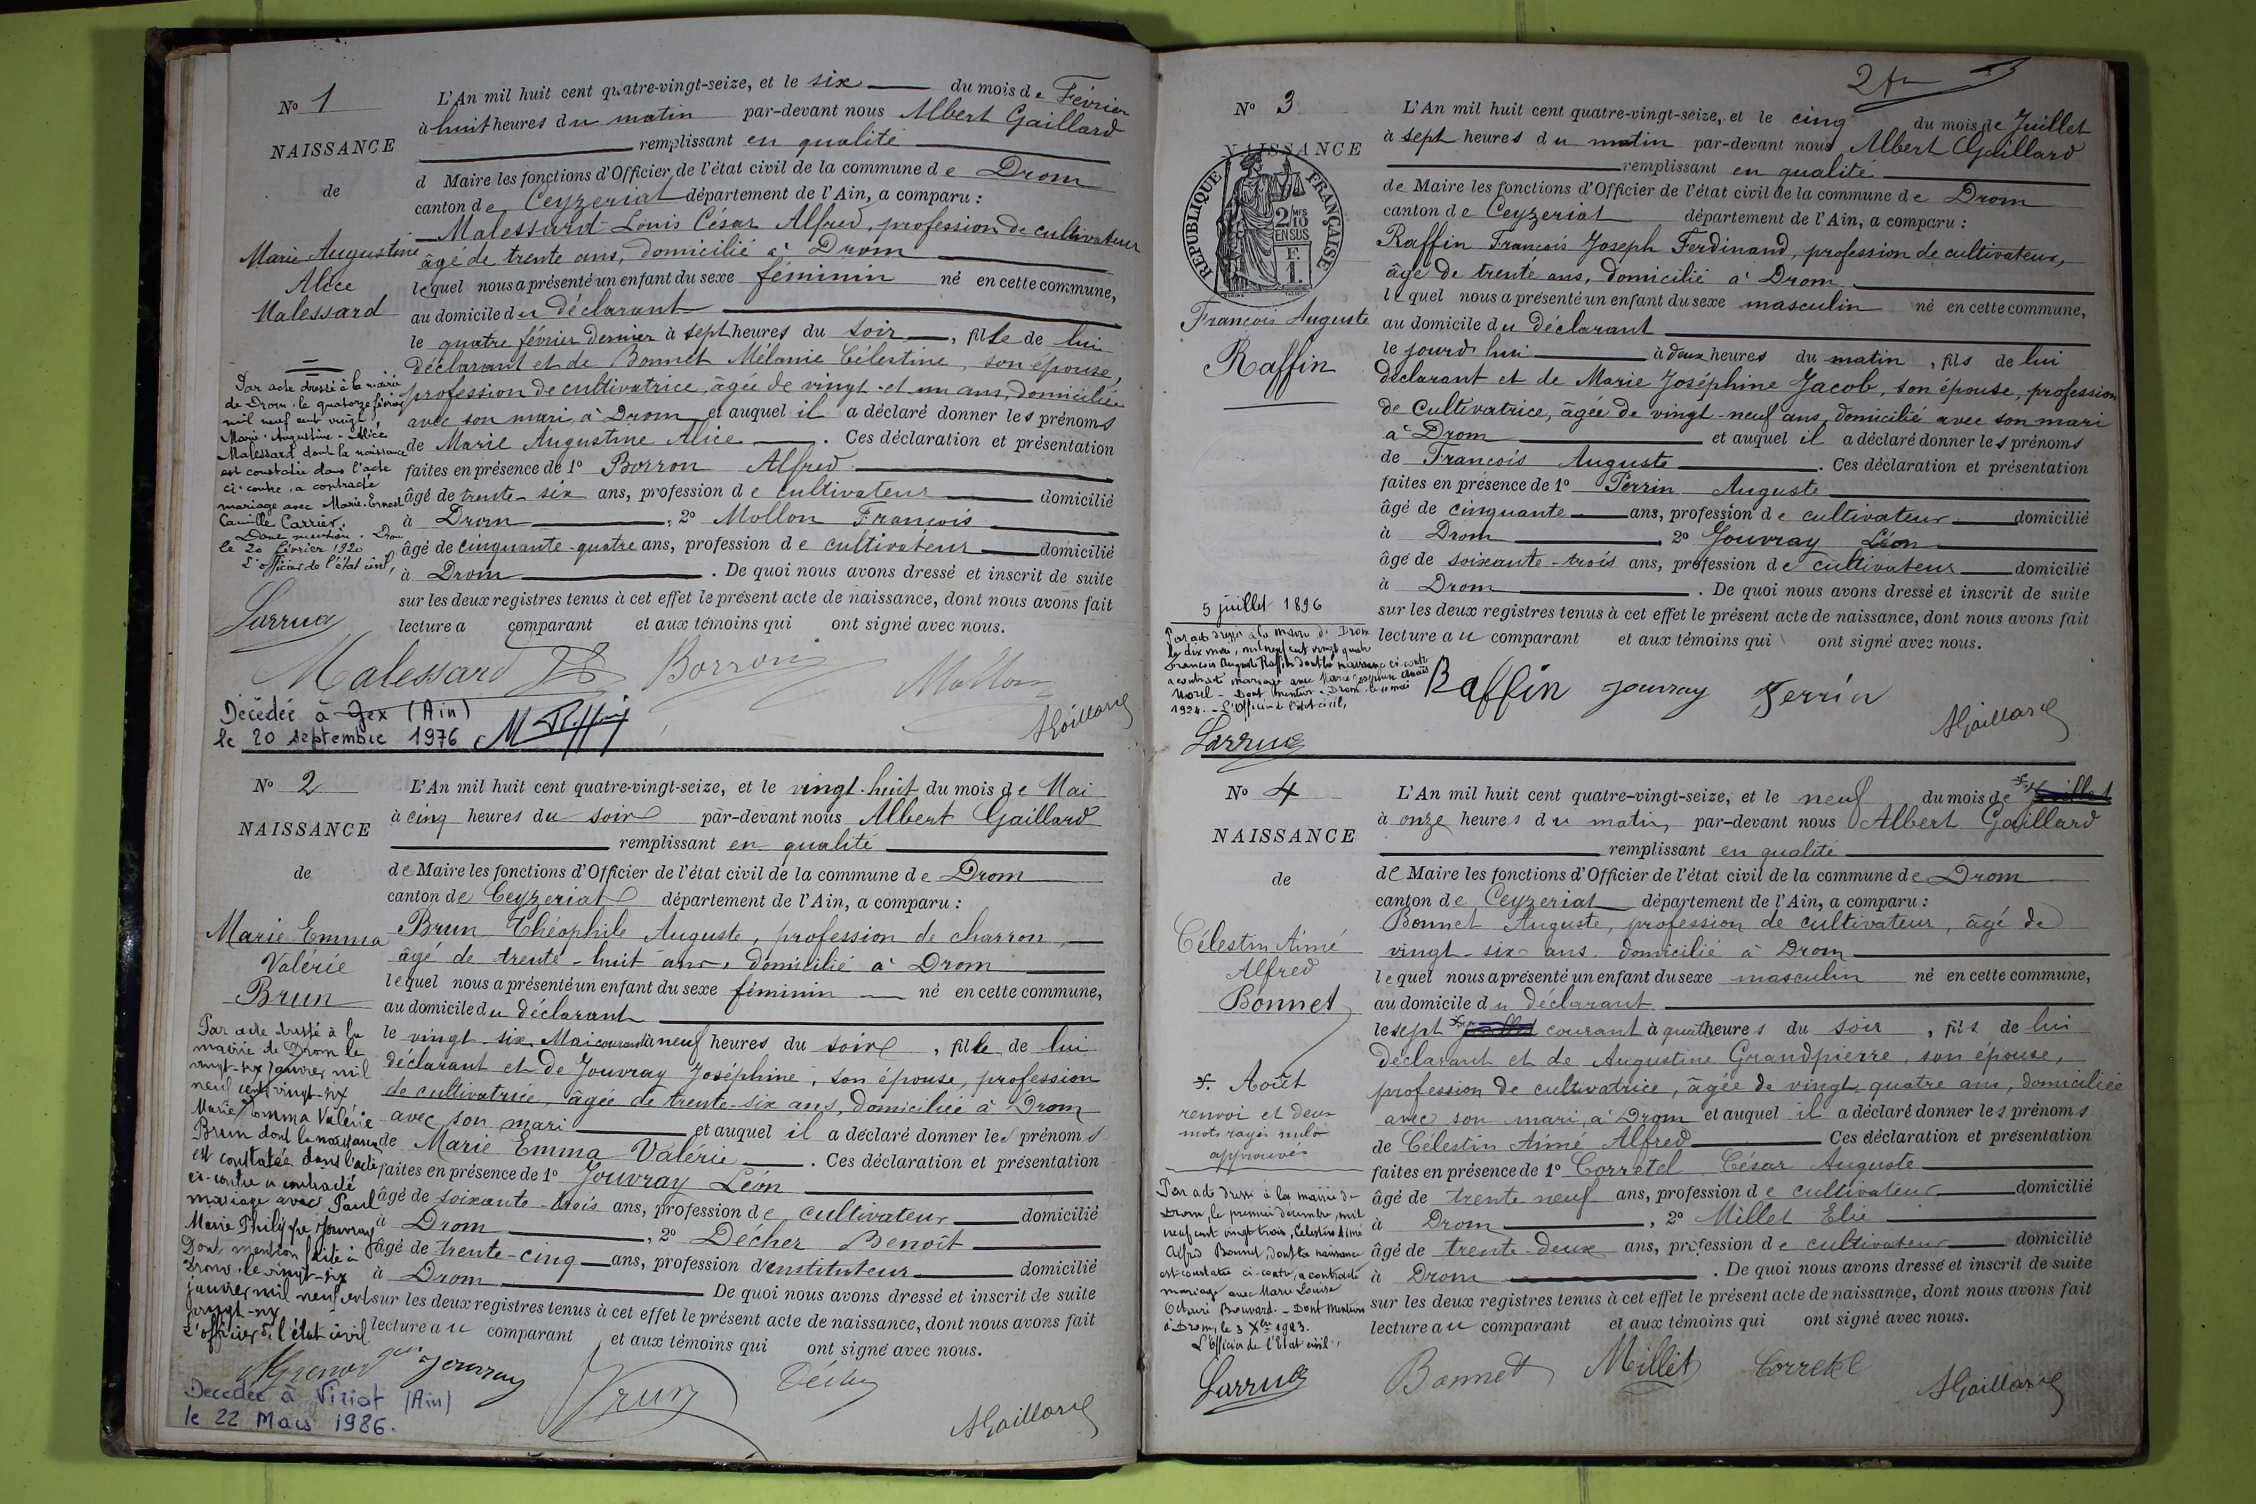 Nº 1
NAISSANCE
de
Marie Augustine
Alice
Malessard
Par acte dressé à la mairie
de Drom, le quatorze février
mil neuf cent vingt,
Marie-Augustine-Alice
Malessard dont la naissance
est constatée dans l'acte
ci-contre, a contracté
mariage avec Marie-Ernest
Camille Carrier.
Dont mention. Drom
le 20 février 1920
L'officier de l'état civil,
Larrua
L'An mil huit cent quatre-vingt-seize, et le six du mois de Février
à huit heures du matin par-devant nous Albert Gaillard
remplissant en qualité
d Maire les fonctions d'Officier de l'état civil de la commune de Drom
canton de Ceyzeriat département de l'Ain, a comparu :
Malessard Louis César Alfred, profession de cultivateur
âgé de trente ans, domicilié à Drom
lequel nous a présenté un enfant du sexe féminin né en cette commune,
au domicile du déclarant
le quatre février dernier à sept heures du soir, fille de lui
déclarant et de Bonnet Mélanie Célestine, son épouse,
profession de cultivatrice, âgée de vingt-et-un ans, domiciliée
avec son mari à Drom et auquel il a déclaré donner les prénoms
de Marie Augustine Alice. Ces déclaration et présentation
faites en présence de 1º Borron Alfred
âgé de trente-six ans, profession de cultivateur domicilié
à Drom, 2º Mollon François
âgé de cinquante-quatre ans, profession de cultivateur domicilié
à Drom. De quoi nous avons dressé et inscrit de suite
sur les deux registres tenus à cet effet le présent acte de naissance, dont nous avons fait
lecture a comparant et aux témoins qui ont signé avec nous.
Malessard Borron Mollon
AGaillard
Décédée à Gex (Ain)
le 20 septembre 1976
Nº 2
NAISSANCE
de
Marie Emma
Valérie
Brun
Par acte dressé à la
mairie de Drom le
vingt-six janvier mil
neuf cent vingt-six
Marie Emma Valérie
Brun dont la naissance
est constatée dans l'acte
ci-contre a contracté
mariage avec Paul
Marie Philippe Jouvray
Dont mention faite à
Drom, le vingt-six
janvier mil neuf cent
vingt-six
L'officier de l'état civil
L'An mil huit cent quatre-vingt-seize, et le vingt-huit du mois de Mai
à cinq heures du soir par-devant nous Albert Gaillard
remplissant en qualité
de Maire les fonctions d'Officier de l'état civil de la commune de Drom
canton de Ceyzeriat département de l'Ain, a comparu :
Brun Théophile Auguste, profession de charron,
âgé de trente-huit ans, domicilié à Drom
lequel nous a présenté un enfant du sexe féminin né en cette commune,
au domicile du déclarant
le vingt-six Mai courant à neuf heures du soir, fille de lui
déclarant et de Jouvray Joséphine, son épouse, profession
de cultivatrice, âgée de trente-six ans, domiciliée à Drom
avec son mari et auquel il a déclaré donner les prénoms
de Marie Emma Valérie. Ces déclaration et présentation
faites en présence de 1º Jouvray Léon
âgé de soixante-trois ans, profession de cultivateur domicilié
à Drom, 2º Décher Benoît
âgé de trente-cinq ans, profession d'instituteur domicilié
à Drom De quoi nous avons dressé et inscrit de suite
sur les deux registres tenus à cet effet le présent acte de naissance, dont nous avons fait
lecture au comparant et aux témoins qui ont signé avec nous.
Jouvray Brun Décher
AGaillard
Décédée à Viriat (Ain)
le 22 Mars 1986.
Nº 3
NAISSANCE
RÉPUBLIQUE FRANÇAISE
2/10 MES
EN SUS
F.
1.
François Auguste
Raffin
5 juillet 1896
Par acte dressé à la mairie de Drom
le dix mai, mil neuf cent vingt quatre
François Auguste Raffin dont la naissance ci-contre
a contracté mariage avec Marie Joséphine Anaïs
Morel - Dont mention - Drom le 11 mai
1924. - L'Officier de l'état civil,
Larrua
L'An mil huit cent quatre-vingt-seize, et le cinq du mois de Juillet
à sept heures du matin par-devant nous Albert Gaillard
remplissant en qualité
de Maire les fonctions d'Officier de l'état civil de la commune de Drom
canton de Ceyzeriat département de l'Ain, a comparu :
Raffin François Joseph Ferdinand, profession de cultivateur,
âgé de trente ans, domicilié à Drom
lequel nous a présenté un enfant du sexe masculin né en cette commune,
au domicile du déclarant
le jourd'hui à deux heures du matin, fils de lui
déclarant et de Marie Joséphine Jacob, son épouse, profession
de cultivatrice, âgée de vingt-neuf ans, domicilié avec son mari
à Drom et auquel il a déclaré donner les prénoms
de François Auguste. Ces déclaration et présentation
faites en présence de 1º Perrin Auguste
âgé de cinquante ans, profession de cultivateur domicilié
à Drom 2º Jouvray Léon
âgé de soixante-trois ans, profession de cultivateur domicilié
à Drom. De quoi nous avons dressé et inscrit de suite
sur les deux registres tenus à cet effet le présent acte de naissance, dont nous avons fait
lecture au comparant et aux témoins qui ont signé avec nous.
Raffin Jouvray Perrin
AGaillard
Nº 4
NAISSANCE
de
Célestin Aimé
Alfred
Bonnet
*. Août
renvoi et deux
mots rayés nuls
approuvés
Par acte dressé à la mairie de
Drom, le premier décembre, mil
neuf cent vingt trois, Célestin Aimé
Alfred Bonnet, dont la naissance
est constatée ci-contre, a contracté
mariage avec Marie Louise
Brouard. - Dont Mention
à Drom, le 3 Xbre 1923.
L'Officier de l'Etat civil,
Larrua
L'An mil huit cent quatre-vingt-seize, et le neuf du mois de * Juillet
à onze heures du matin, par-devant nous Albert Gaillard
remplissant en qualité
de Maire les fonctions d'Officier de l'état civil de la commune de Drom
canton de Ceyzeriat département de l'Ain, a comparu :
Bonnet Auguste, profession de cultivateur, âgé de
vingt-six ans, domicilié à Drom
lequel nous a présenté un enfant du sexe masculin né en cette commune,
au domicile du déclarant
le sept * juillet courant à quatre heures du soir, fils de lui
déclarant et de Augustine Grandpierre, son épouse,
profession de cultivatrice, âgée de vingt quatre ans, domiciliée
avec son mari, à Drom et auquel il a déclaré donner les prénoms
de Célestin Aimé Alfred Ces déclaration et présentation
faites en présence de 1º Corretel César Auguste
âgé de trente neuf ans, profession de cultivateur domicilié
à Drom, 2º Millet Elie
âgé de trente-deux ans, profession de cultivateur domicilié
à Drom. De quoi nous avons dressé et inscrit de suite
sur les deux registres tenus à cet effet le présent acte de naissance, dont nous avons fait
lecture au comparant et aux témoins qui ont signé avec nous.
Bonnet Millet Corretel
AGaillard